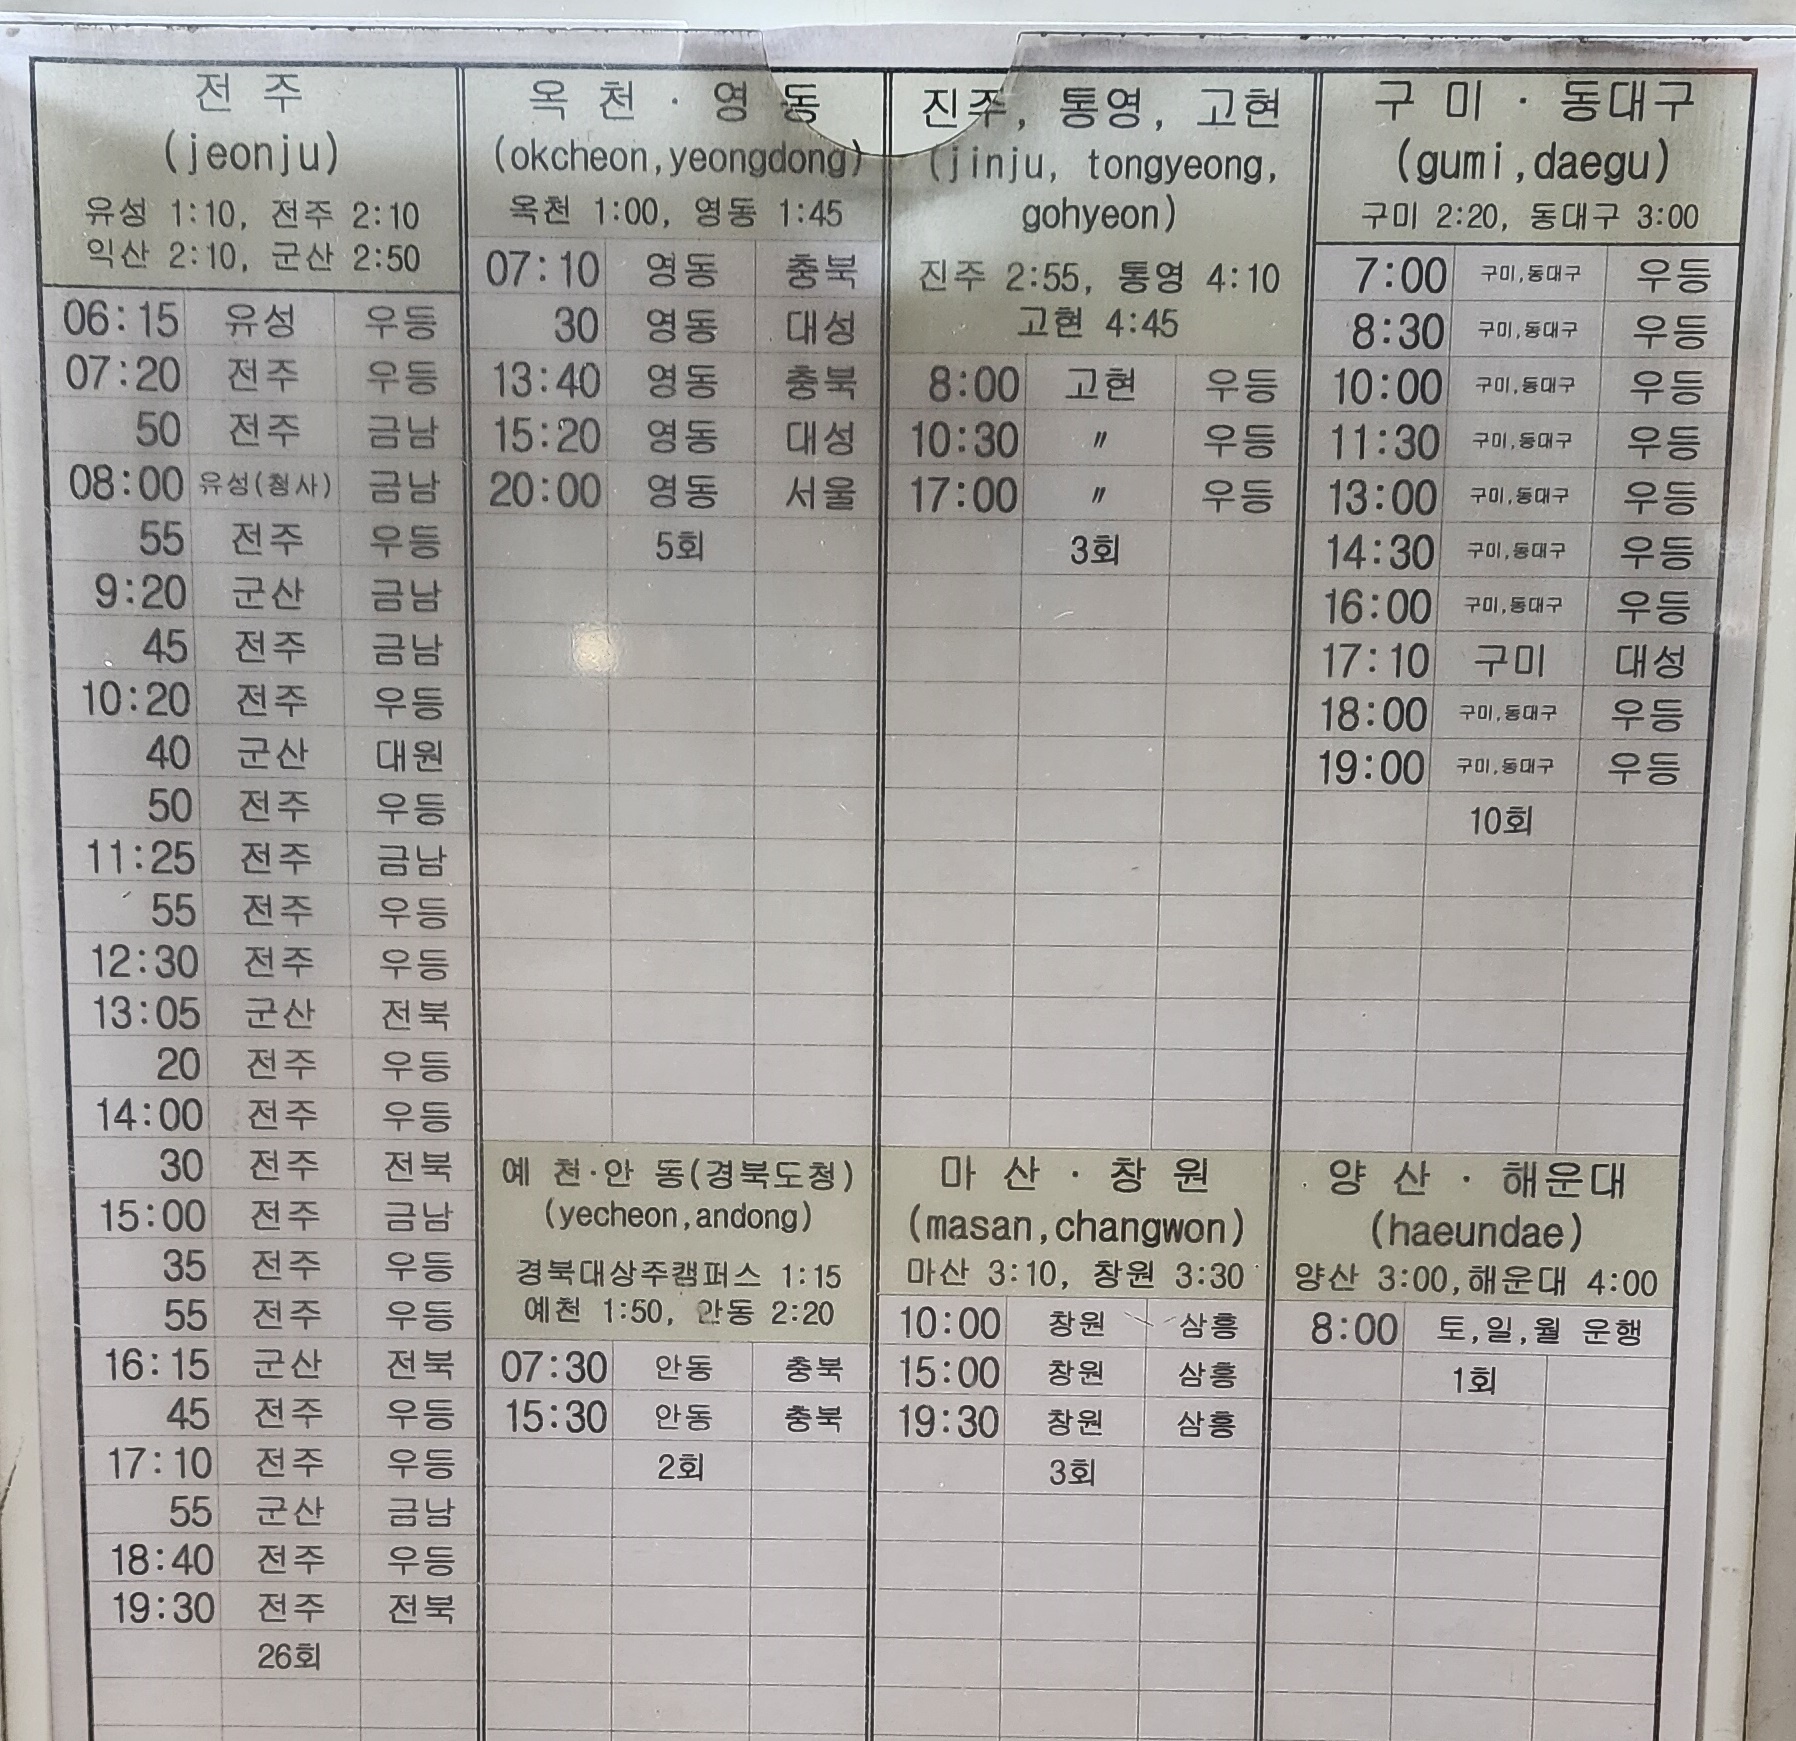 전 주
(jeonju)
유성 1:10, 전주 2:10
익산 2:10, 군산 2:50
06:15 유성 우등
07:20 전주 우등
50 전주 금남
08:00 유성(청사) 금남
55 전주 우등
9:20 군산 금남
45 전주 금남
10:20 전주 우등
40 군산 대원
50 전주 우등
11:25 전주 금남
55 전주 우등
12:30 전주 우등
13:05 군산 전북
20 전주 우등
14:00 전주 우등
30 전주 전북
15:00 전주 금남
35 전주 우등
55 전주 우등
16:15 군산 전북
45 전주 우등
17:10 전주 우등
55 군산 금남
18:40 전주 우등
19:30 전주 전북
26회
옥 천 · 영 동
(okcheon,yeongdong)
옥천 1:00, 영동 1:45
07:10 영동 충북
30 영동 대성
13:40 영동 충북
15:20 영동 대성
20:00 영동 서울
5회
예 천·안 동(경북도청)
(yecheon,andong)
경북대상주캠퍼스 1:15
예천 1:50, 안동 2:20
07:30 안동 충북
15:30 안동 충북
2회
진주, 통영, 고현
(jinju, tongyeong,
gohyeon)
진주 2:55, 통영 4:10
고현 4:45
8:00 고현 우등
10:30 〃 우등
17:00 〃 우등
3회
마 산 · 창 원
(masan,changwon)
마산 3:10, 창원 3:30
10:00 창원 삼흥
15:00 창원 삼흥
19:30 창원 삼흥
3회
구 미 · 동대구
(gumi,daegu)
구미 2:20, 동대구 3:00
7:00 구미,동대구 우등
8:30 구미,동대구 우등
10:00 구미,동대구 우등
11:30 구미,동대구 우등
13:00 구미,동대구 우등
14:30 구미,동대구 우등
16:00 구미,동대구 우등
17:10 구미 대성
18:00 구미,동대구 우등
19:00 구미,동대구 우등
10회
양 산 · 해운대
(haeundae)
양산 3:00,해운대 4:00
8:00 토,일,월 운행
1회